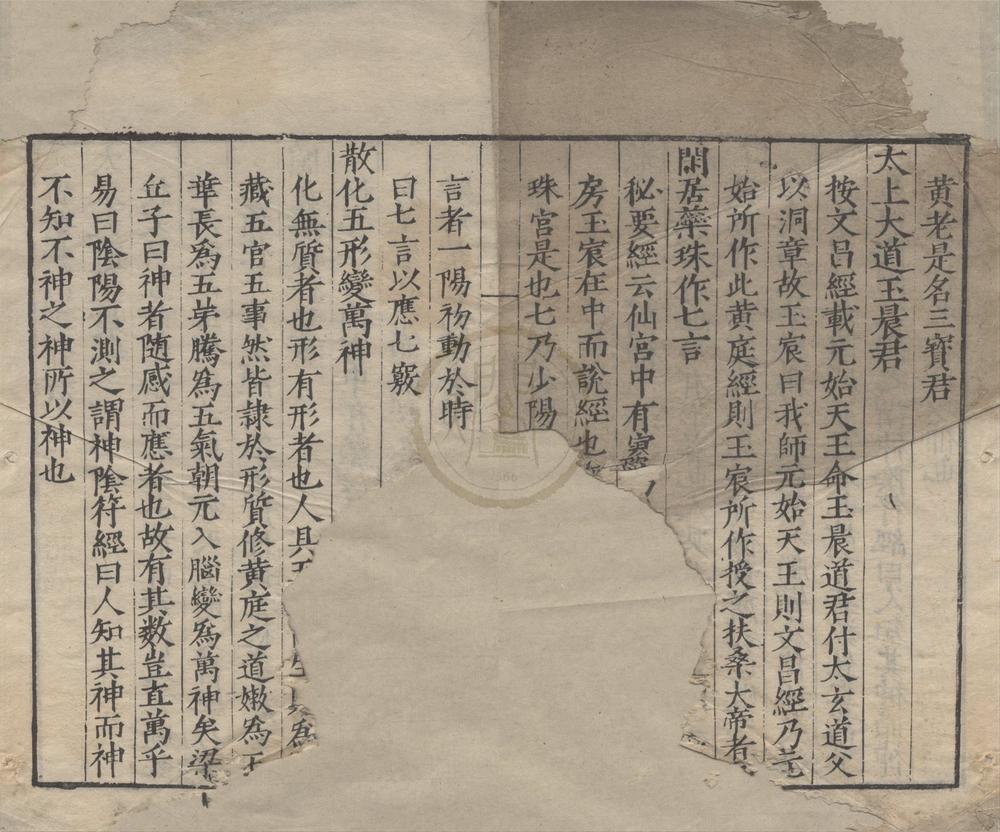 黄老是名三寳君
太上大道玉晨君
按文昌經載元始天王命玉晨道君付太玄道父
以洞章故玉宸曰我師元始天王則文昌經乃元
始所作此黄庭經則玉宸所作授之扶桑大帝者
閒居蘂珠作七言
秘要經云仙宮中有寥
房玉宸在中而説經也
珠宮是也七乃少陽
言者一陽初動於時
曰七言以應七竅
散化五形變萬神
化無質者也形有形者也人具五
為
藏五官五事然皆隷於形質修黄庭之道嫩為五
華長為五芽騰為五氣朝元入腦變為萬神矣梁
丘子曰神者随感而應者也故有其数豈直萬乎
易曰隂陽不測之謂神隂符經曰人知其神而神
不知不神之神所以神也